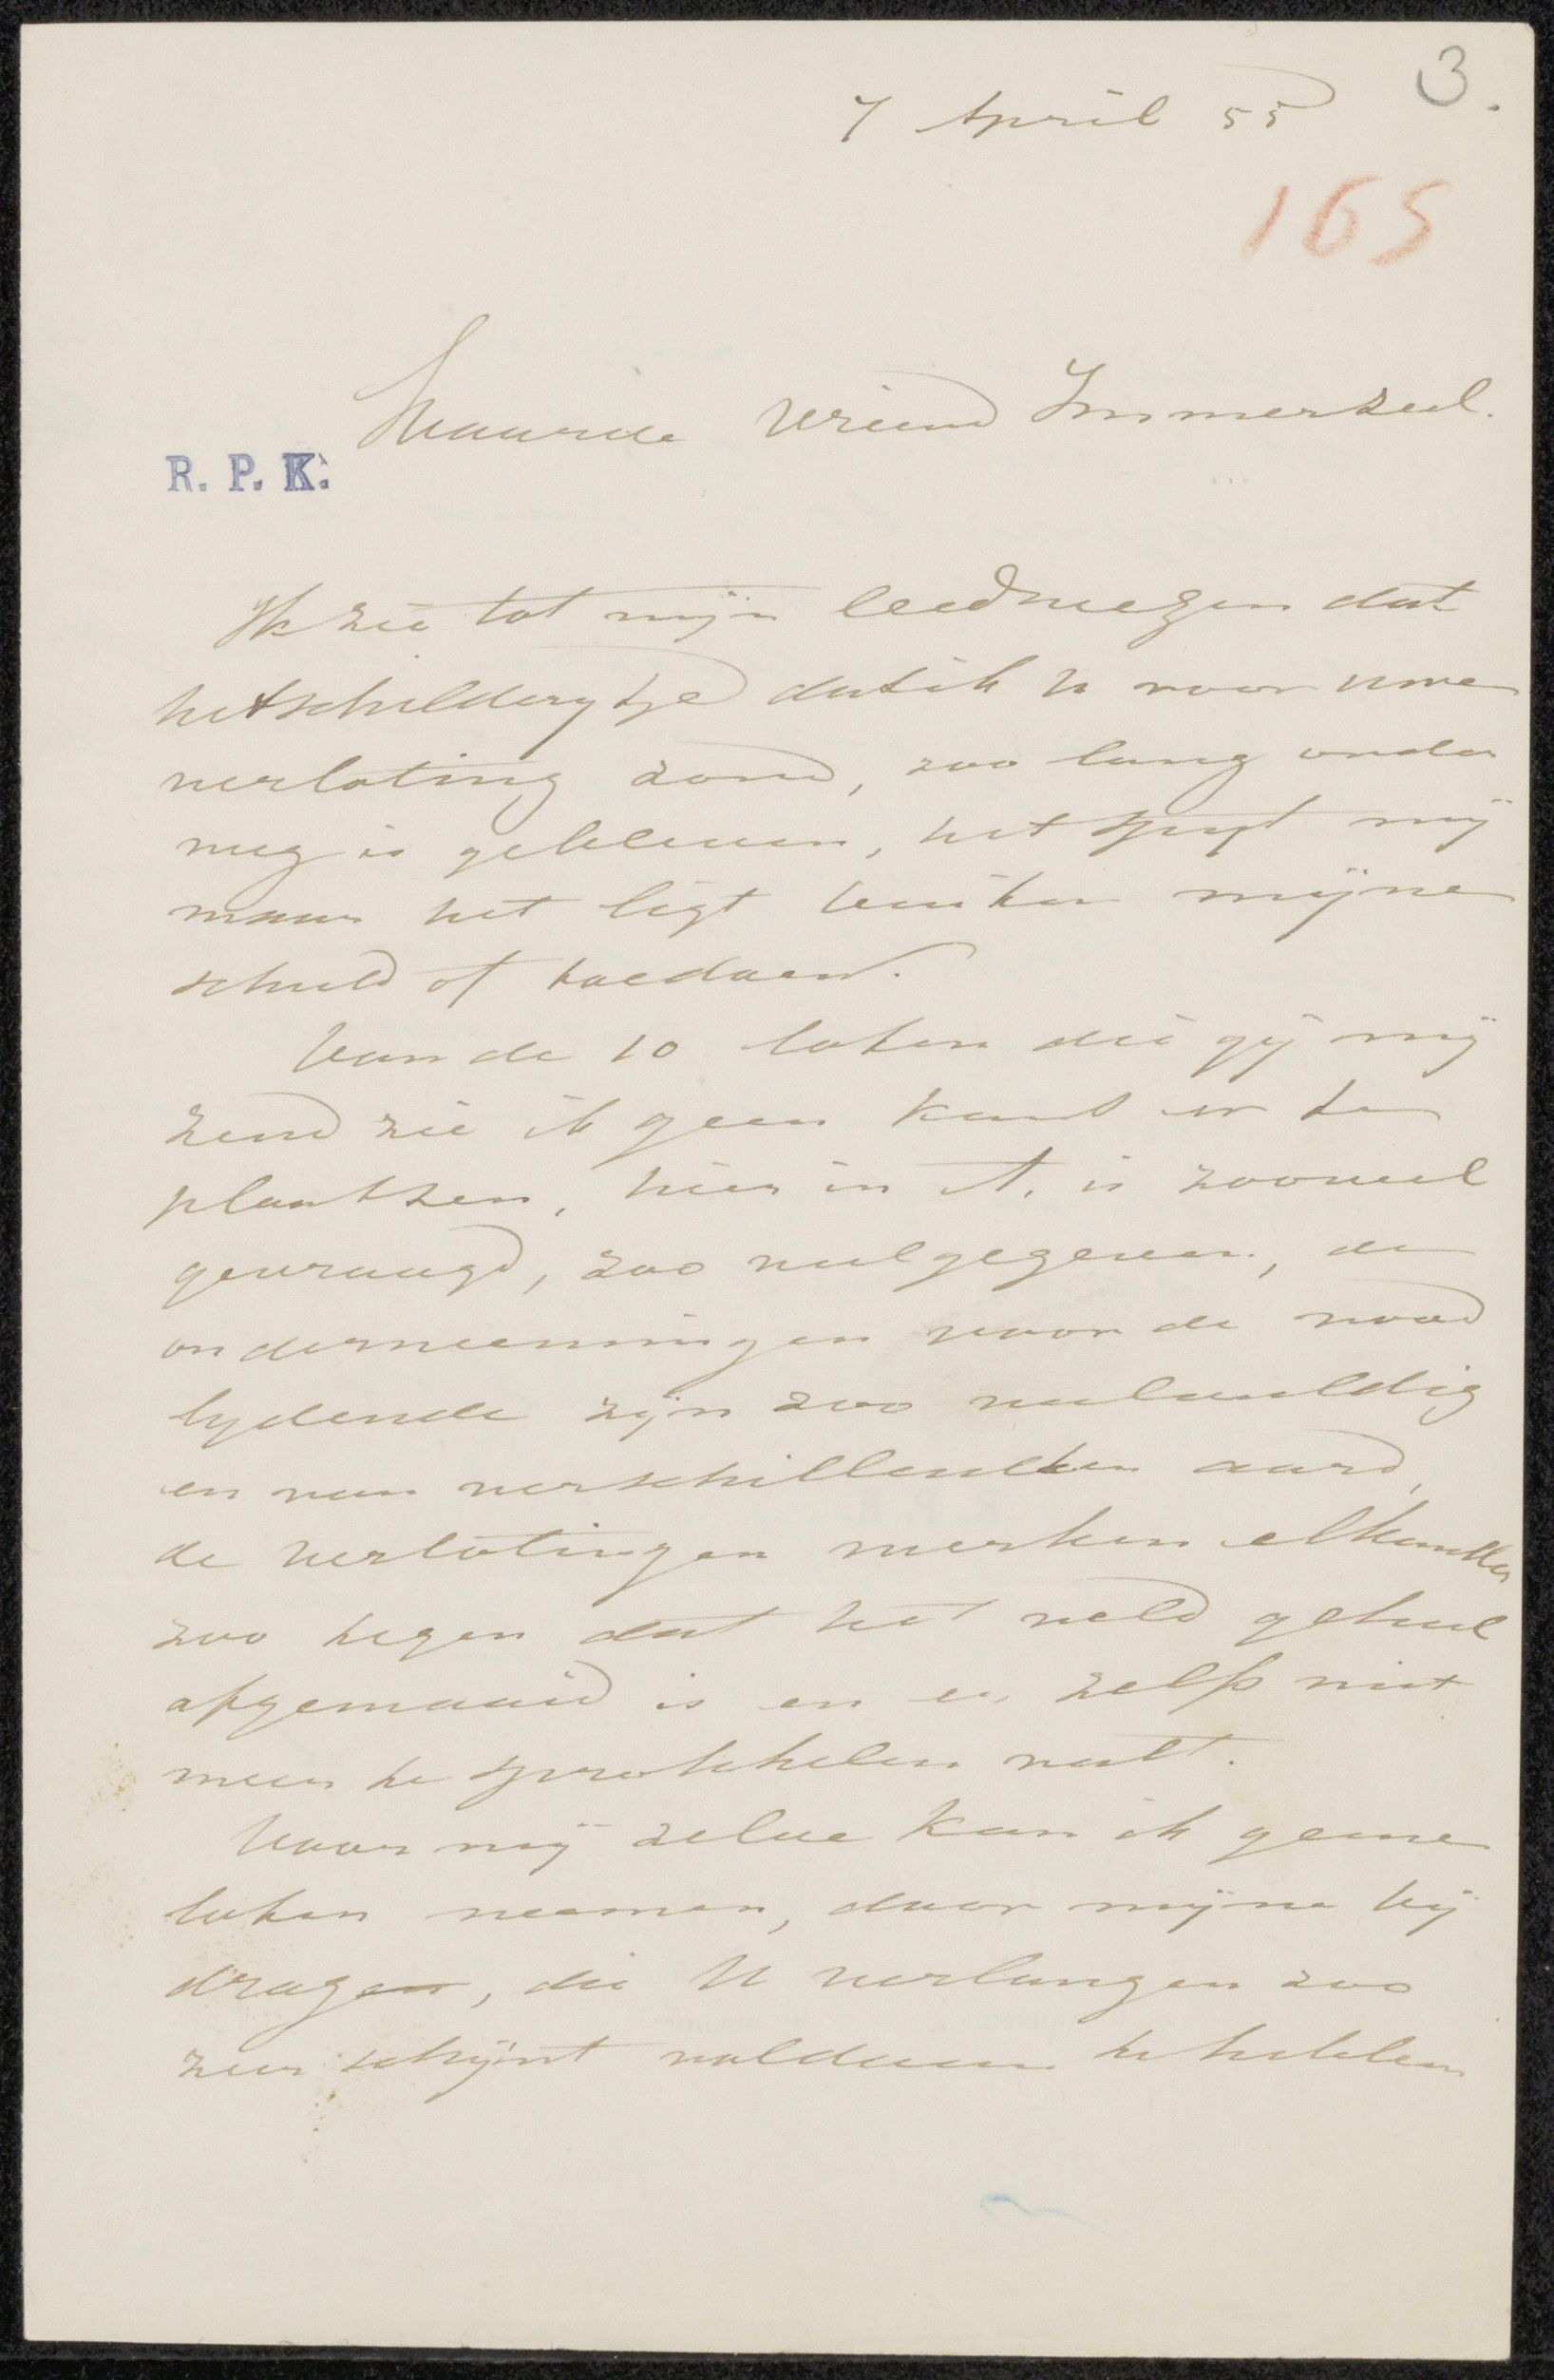 3.
7 April 55
165
Waarde Vriend Immerzeel.
R. P. K.
Ik zie tot mijn leedweezen dat
het schilderytje dat ik U voor uwe
verloting zond, zoo lang onder
weg is gebleven, het spyt mij
maar het ligt buiten mijne
schuld of toedoen.
Van de 10 loten die gij mij
zend zie ik geen kans er te
plaatzen, hier in A. is zooveel
gevraagd, zoo veel gegeven, de
onderneemingen voor de nood
lydende zijn zoo veelvuldig
en van verschillenden aard,
de verlotingen werken elkander
zoo tegen dat het veld geheel
afgemaaid is en er zelfs niet
meer te sprokkelen valt.
Voor mij zelve kan ik geene
loten neemen, daar mijne bij
dragen, die U verlangen zoo
zeer schijnt voldaan te hebben